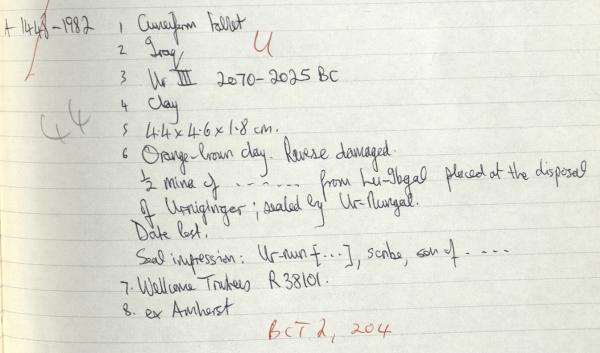 A 1448-1982 1 Cuneiform Tablet
2 Iraq U
3 Ur III 2070-2025 BC
4 Clay
44
5 4.4 x 4.6 x 1.8 cm.
6 Orange-brown clay. Reverse damaged.
1/2 mina of ....... from Lu-Ibgal placed at the disposal
of Ur-nigingar; sealed by Ur-Nungal.
Date lost.
Seal impression: Ur-nun [...], scribe, son of .....
7. Wellcome Trustees R 38101.
8. ex Amherst
BCT 2, 204